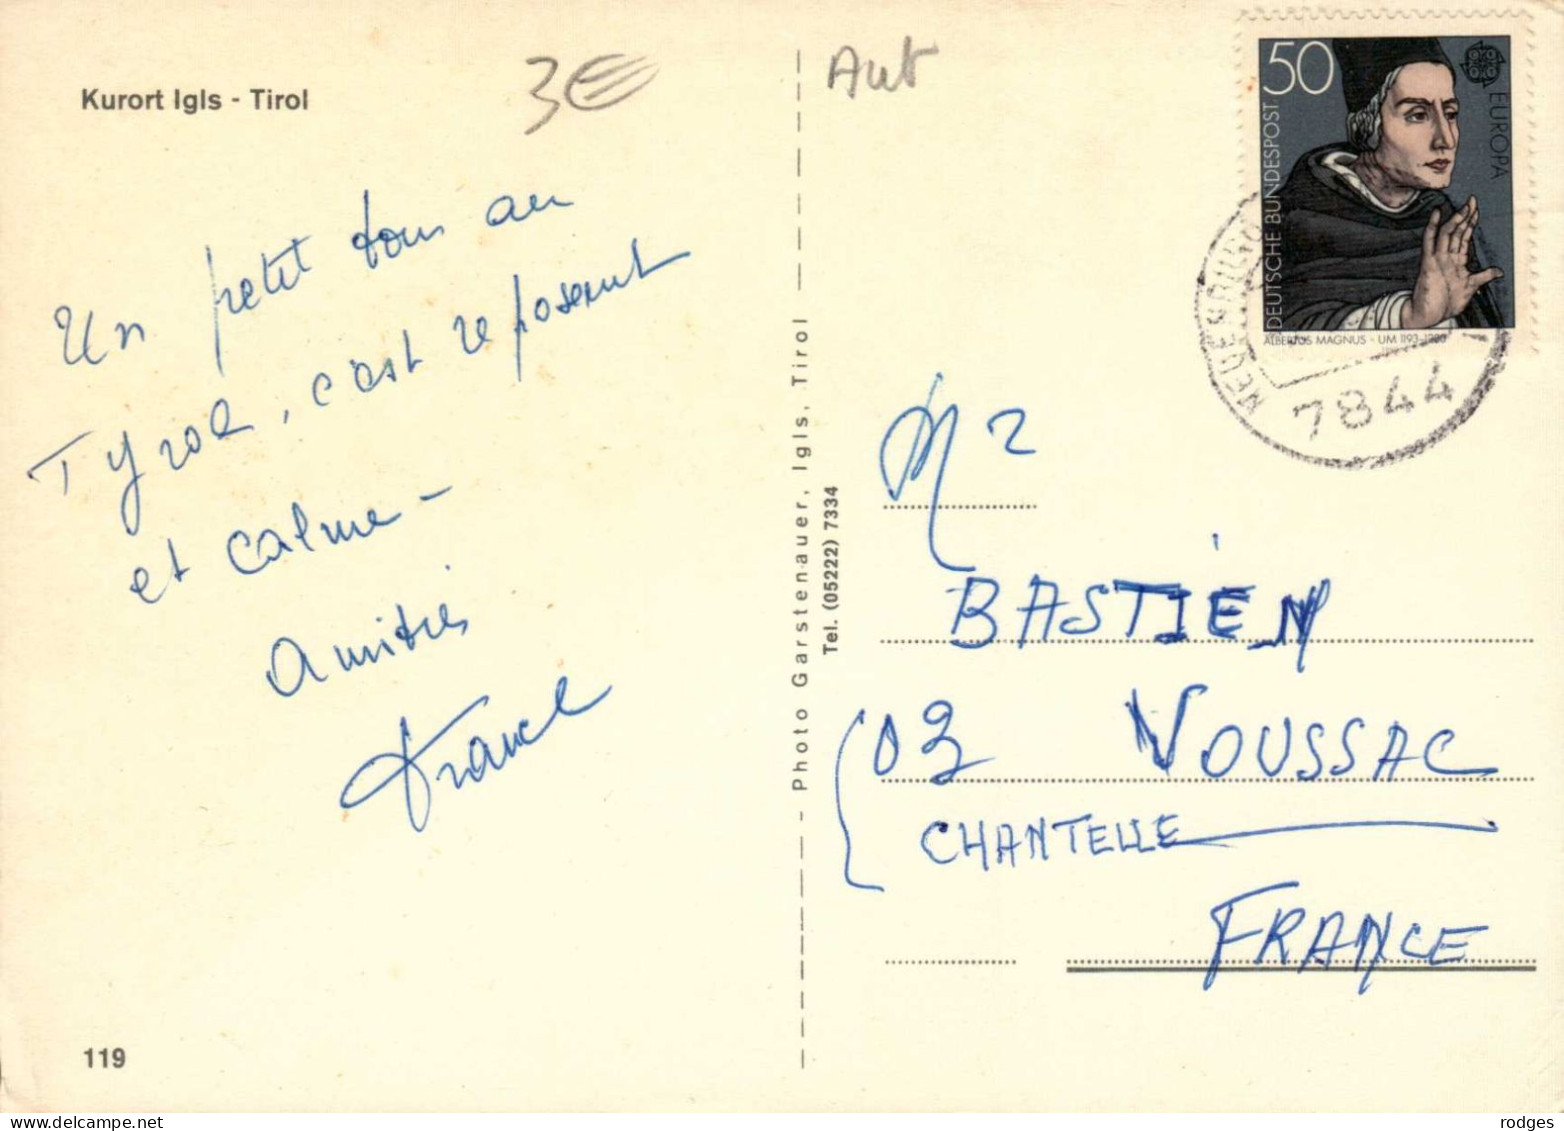 Kurort Igls - Tirol
3€
Un petit tour au
Tyrol, c'est reposant
et calme -
Amitiés
Franck
119
Photo Garstenauer, Igls, Tirol
Tel. (05222) 7334
Aut
50
DEUTSCHE BUNDESPOST
EUROPA
ALBERTUS MAGNUS · UM 1193-1280
7844
Mr
BASTIEN
03 VOUSSAC
CHANTELLE
FRANCE
rodges